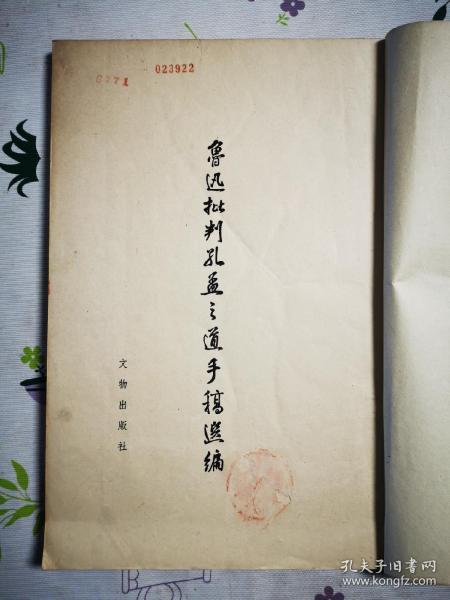 6271
023922
魯迅批判孔孟之道手稿选编
文物出版社
孔夫子旧书网
www.kongfz.com